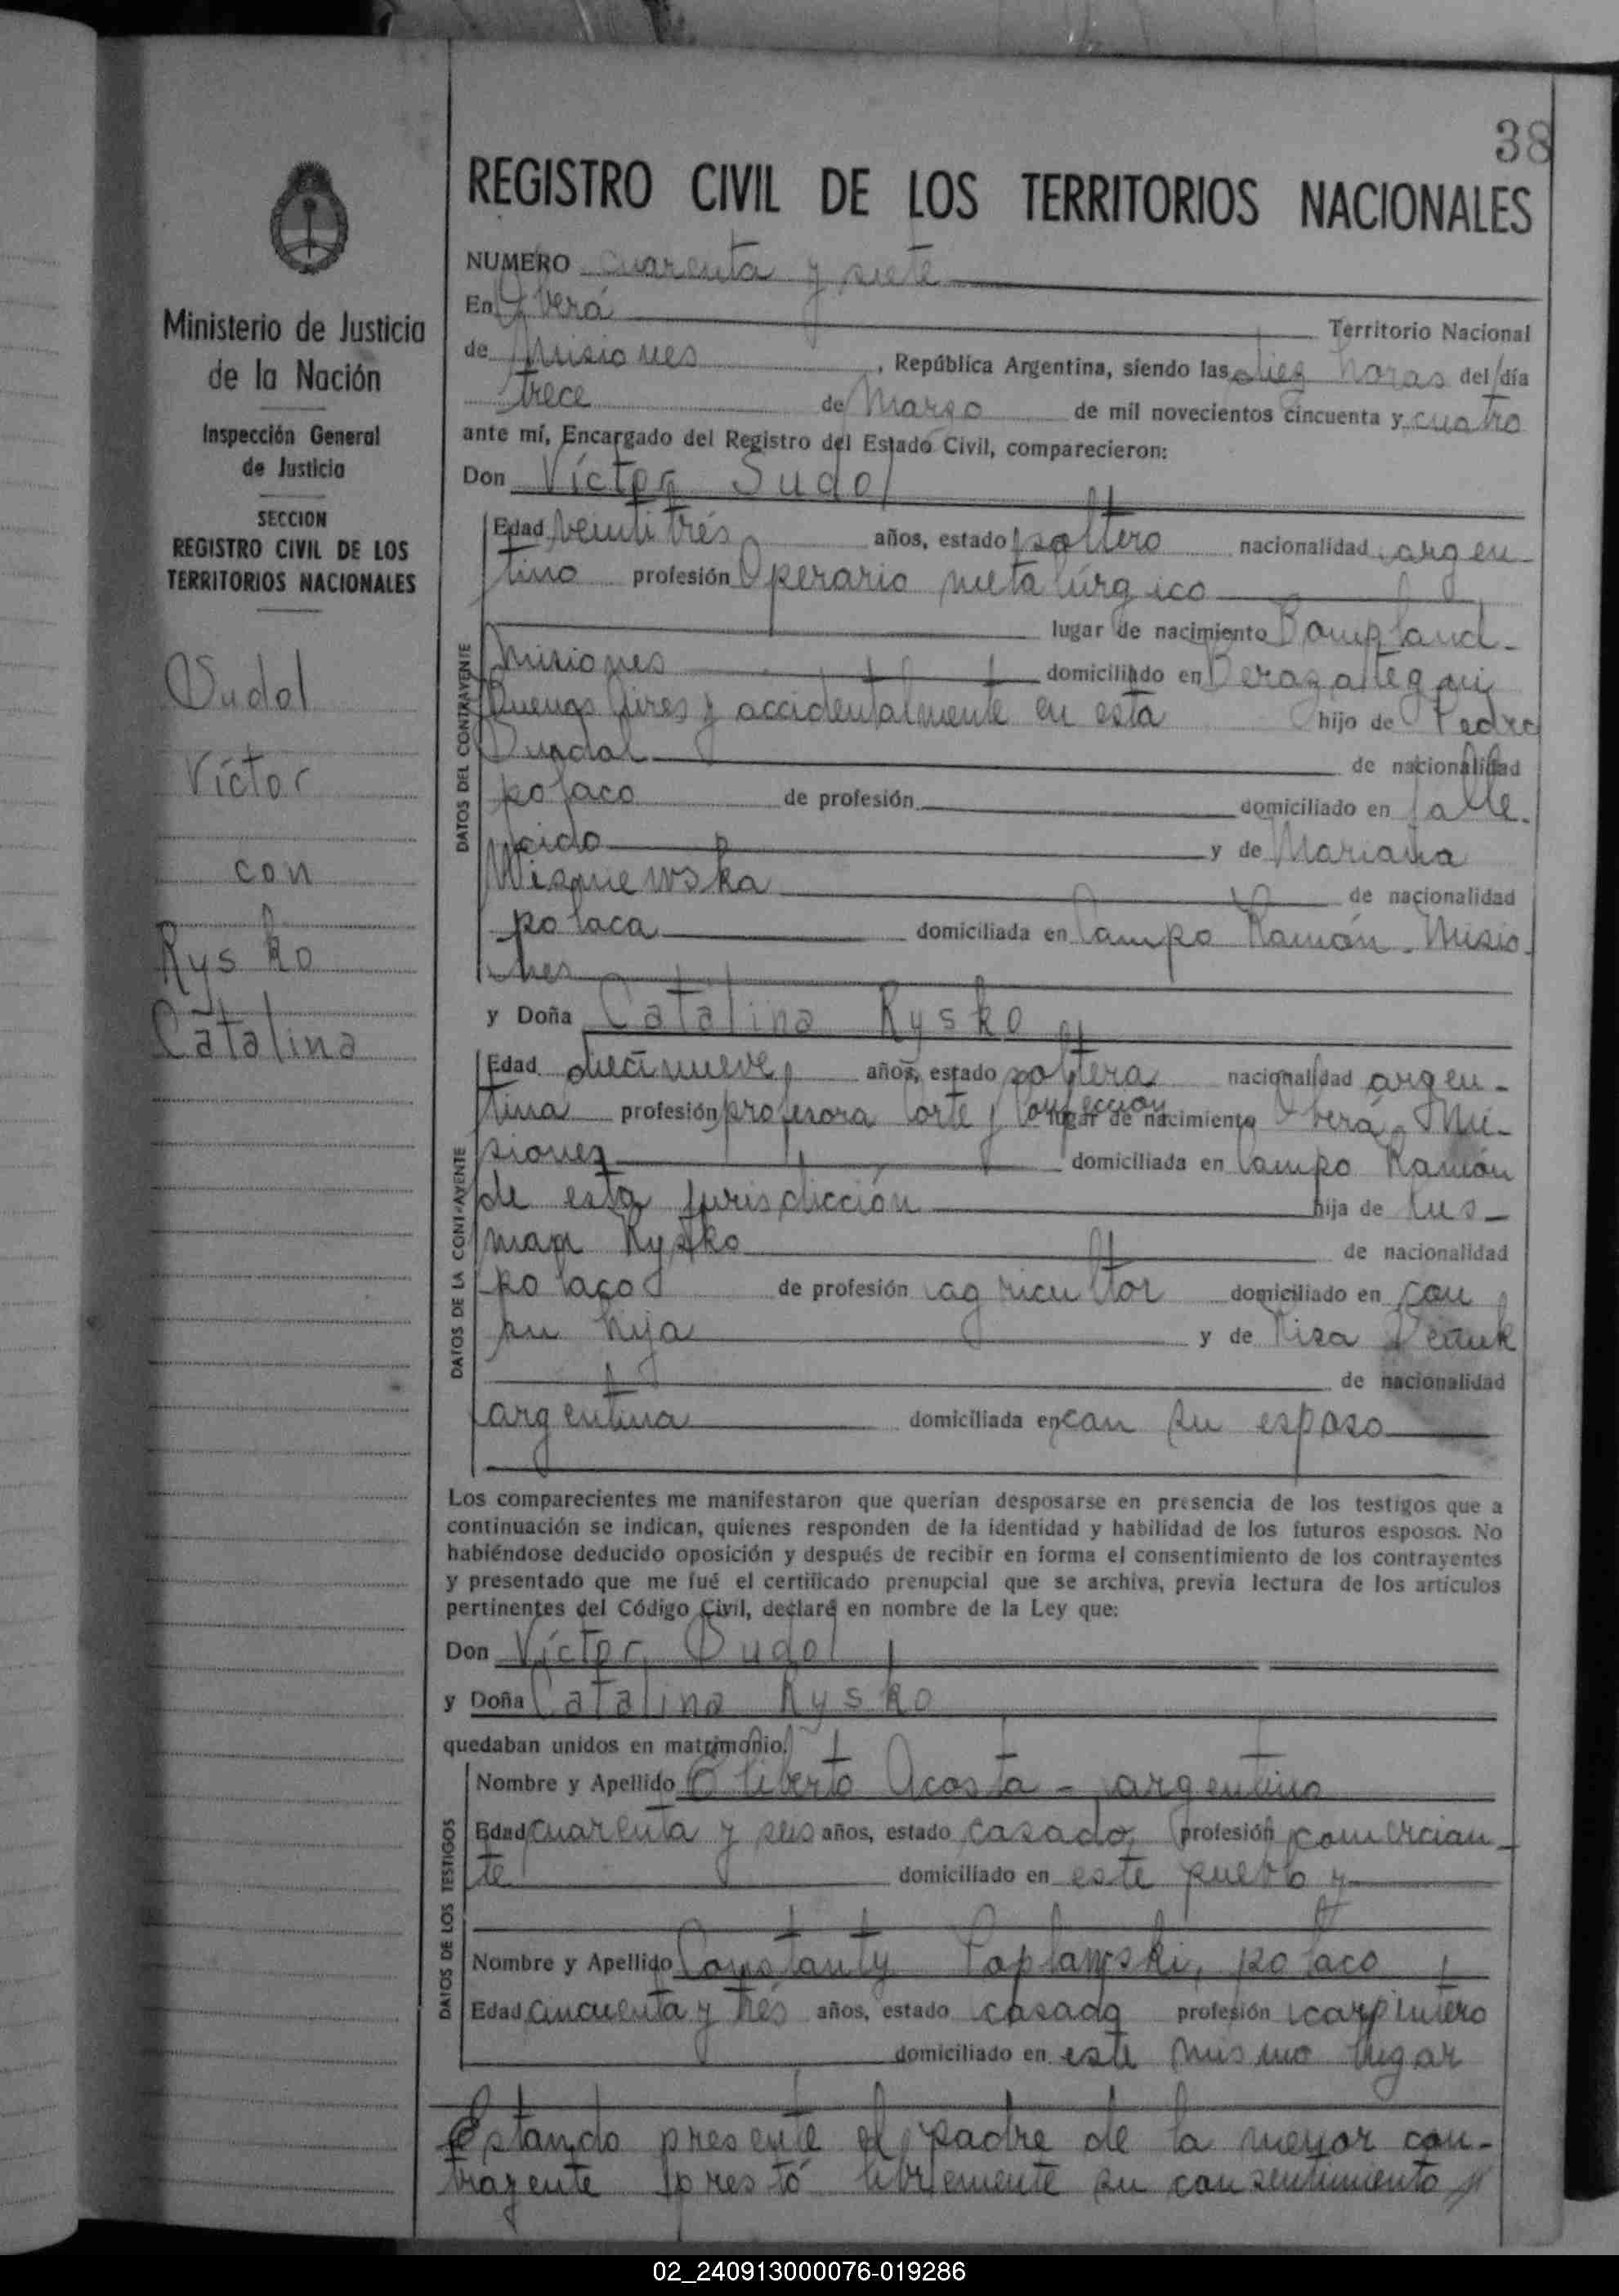 38
REGISTRO CIVIL DE LOS TERRITORIOS NACIONALES
Ministerio de Justicia
de la Nación
Inspección General
de Justicia
SECCION
REGISTRO CIVIL DE LOS
TERRITORIOS NACIONALES
Sudol
Víctor
con
Rysko
Catalina
NUMERO cuarenta y siete
En Oberá Territorio Nacional
de Misiones, República Argentina, siendo las diez horas del día
trece de Marzo de mil novecientos cincuenta y cuatro
ante mí, Encargado del Registro del Estado Civil, comparecieron:
Don Víctor Sudol
DATOS DEL CONTRAYENTE
Edad veintitrés años, estado soltero nacionalidad argen-
tino profesión Operario metalúrgico
lugar de nacimiento Bompland-
Misiones domiciliado en Berazategui
Buenos Aires y accidentalmente en esta hijo de Pedro
de nacionalidad
polaco de profesión domiciliado en falle-
cido y de Mariana
de nacionalidad
polaca domiciliada en Campo Ramón - Misio-
nes
y Doña Catalina Rysko
DATOS DE LA CONTRAYENTE
Edad diecinueve, años, estado soltera nacionalidad argen-
tina profesión profesora Corte y Confección lugar de nacimiento Oberá - Mi-
siones domiciliada en Campo Ramón
de esta jurisdicción hija de
Rysko de nacionalidad
polaco de profesión agricultor domiciliado en con
su hija y de
de nacionalidad
argentina domiciliada en con su esposo
Los comparecientes me manifestaron que querían desposarse en presencia de los testigos que a
continuación se indican, quienes responden de la identidad y habilidad de los futuros esposos. No
habiéndose deducido oposición y después de recibir en forma el consentimiento de los contrayentes
y presentado que me fué el certificado prenupcial que se archiva, previa lectura de los artículos
pertinentes del Código Civil, declaré en nombre de la Ley que:
Don Víctor Sudol
y Doña Catalina Rysko
quedaban unidos en matrimonio.
DATOS DE LOS TESTIGOS
Nombre y Apellido Acosta - argentino
Edad cuarenta y seis años, estado casado, profesión comercian-
te domiciliado en este pueblo y
Nombre y Apellido Constanty Poplawski, polaco
Edad cincuenta y tres años, estado casado profesión carpintero
domiciliado en este mismo lugar
Estando presente el padre de la menor con-
trayente prestó libremente su consentimiento
02_240913000076-019286